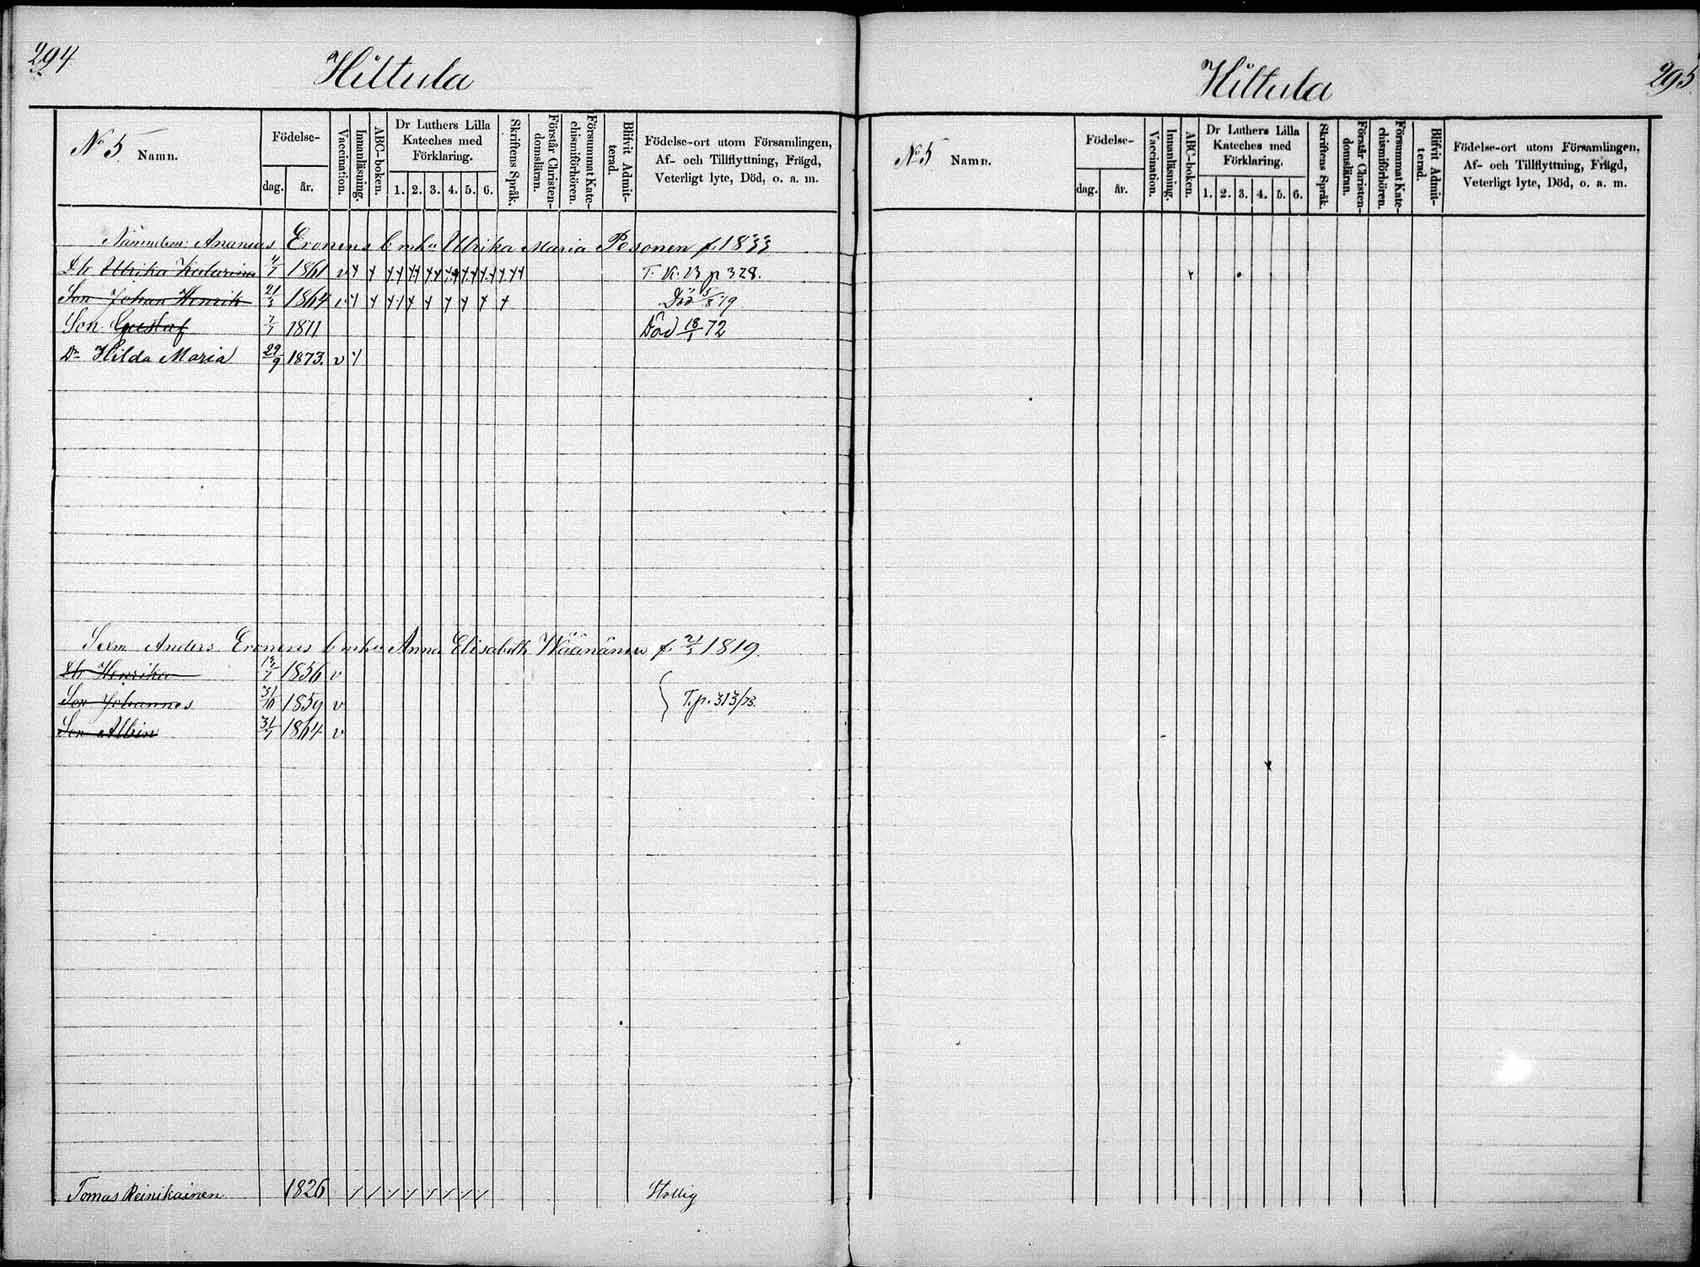 294
Hiltula
No 5 Namn.
Födelse-
dag. år.
Vaccination.
Innanläsning.
ABC-boken.
Dr Luthers Lilla Kateches med Förklaring.
1. 2. 3. 4. 5. 6.
Skriftens Språk.
Förstår Christendomsläran.
Försummat Katechismiförhören.
Blifvit Admitterad.
Födelse-ort utom Församlingen,
Af- och Tillflyttning, Frägd,
Veterligt lyte, Död, o. a. m.
Ananias Eronens Enka Ulrika Maria Pesonen f. 1833
Dr Ulrika Katarina 4/7 1861 v T. K. B p 328.
Son Johan Henrik 21/3 1864 v Död 79
Son Gustaf 1871 Död 18/1 72
Dr Hilda Maria 29/9 1873. v
Anders Eronens Enka Anna Elisabeth Wäänänen f. 21/3 1819.
Dr Henrika 1856 v
Son Johannes 31/10 1859 v T. p. 313/78.
Son Albin 31/7 1864 v
Tomas Reinikainen 1826
Hiltula
295
No 5 Namn.
Födelse-
dag. år.
Vaccination.
Innanläsning.
ABC-boken.
Dr Luthers Lilla Kateches med Förklaring.
1. 2. 3. 4. 5. 6.
Skriftens Språk.
Förstår Christendomsläran.
Försummat Katechismiförhören.
Blifvit Admitterad.
Födelse-ort utom Församlingen,
Af- och Tillflyttning, Frägd,
Veterligt lyte, Död, o. a. m.